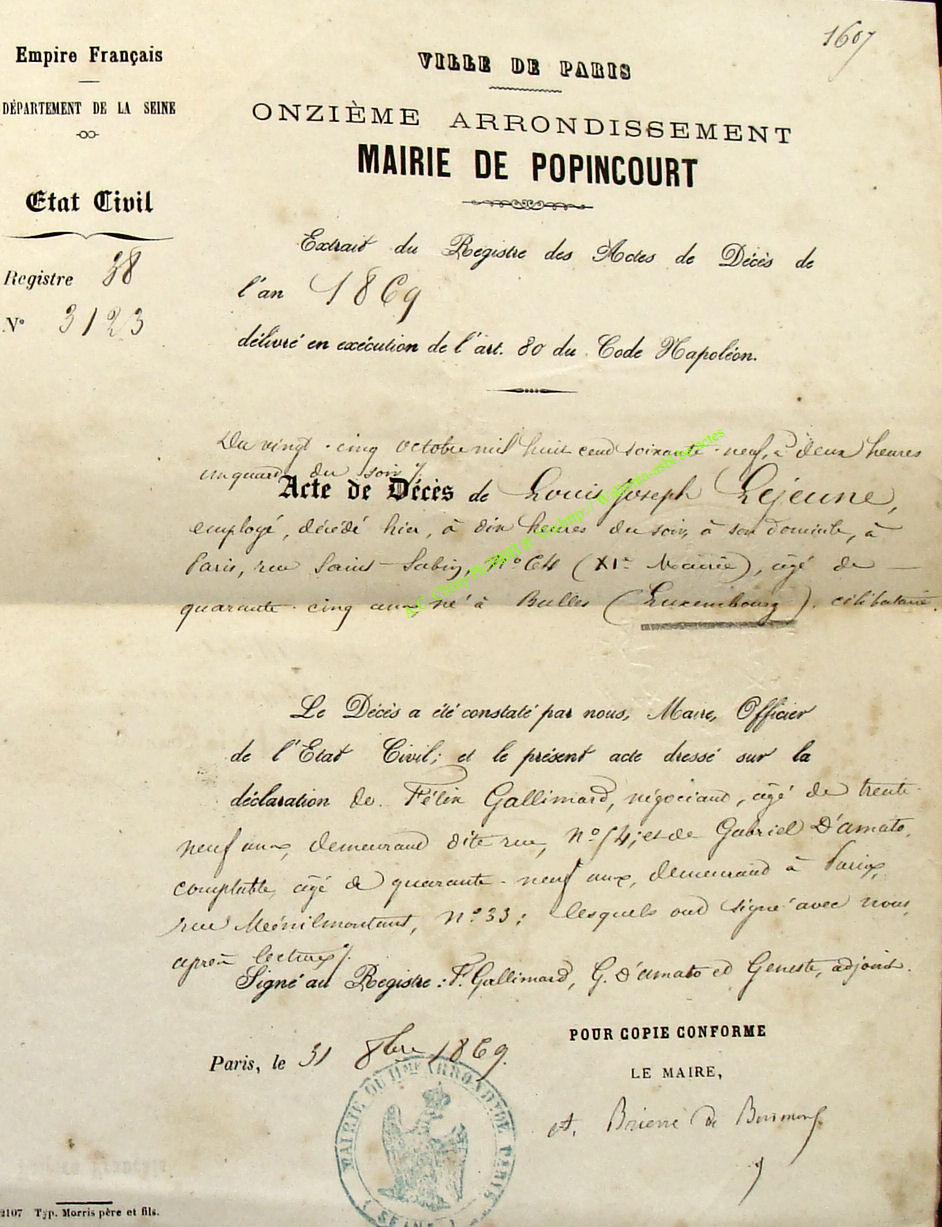 1607
Empire Français
DÉPARTEMENT DE LA SEINE
Etat Civil
Registre 38
N° 3123
VILLE DE PARIS
ONZIÈME ARRONDISSEMENT
MAIRIE DE POPINCOURT
Extrait du Registre des Actes de Décès de
l'an 1869
délivré en exécution de l'art. 80 du Code Napoléon.
Du vingt-cinq octobre mil huit cent soixante-neuf, à deux heures
un quart du soir
Acte de Décès de Louis Joseph Lejeune,
employé, décédé hier, à dix heures du soir, à son domicile, à
Paris, rue Saint-Sabin, n° 64 (XIe Mairie), âgé de —
quarante-cinq ans né à Bulles (Luxembourg). célibataire.
Le Décès a été constaté par nous, Maire, Officier
de l'Etat Civil; et le présent acte dressé sur la
déclaration de Félix Gallimard, négociant, âgé de trente
neuf ans, demeurant dite rue, n° 54; et de Gabriel D'amato,
comptable, âgé de quarante-neuf ans, demeurant à Paris,
rue Ménilmontant, n° 33; lesquels ont signé avec nous,
après lecture
Signé au Registre: F. Gallimard, G. D'amato et Geneste, adjoint.
POUR COPIE CONFORME
Paris, le 31 8bre 1869.
LE MAIRE,
MAIRIE DU 11me ARRONDt DE PARIS
(SEINE)
2107 Typ. Morris père et fils.